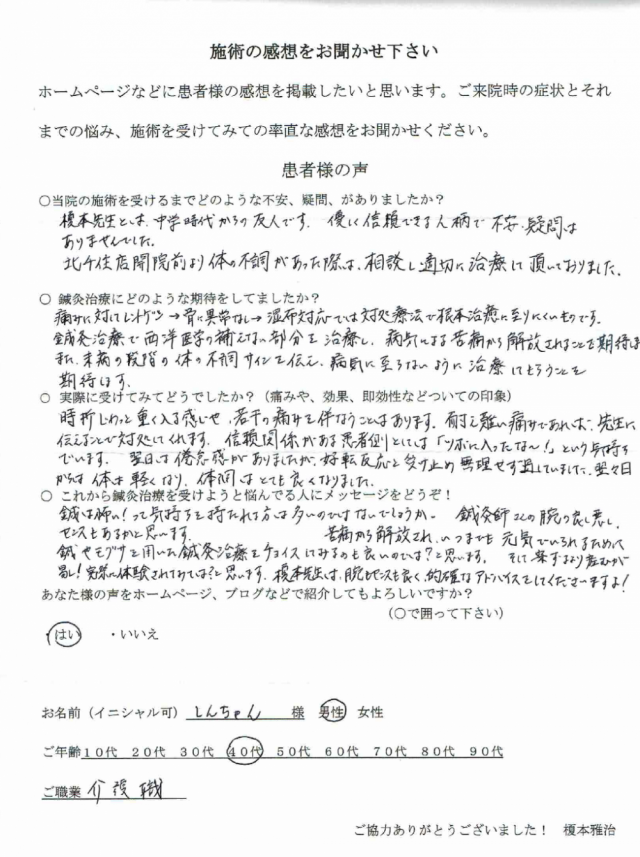 施術の感想をお聞かせ下さい
ホームページなどに患者様の感想を掲載したいと思います。ご来院時の症状とそれ
までの悩み、施術を受けてみての率直な感想をお聞かせください。
患者様の声
○当院の施術を受けるまでどのような不安、疑問、がありましたか？
榎本先生とは、中学時代からの友人です。優しく信頼できる人柄で不安、疑問は
ありませんでした。
北千住店開院前より体の不調があった際は、相談し適切に治療して頂いておりました。
○ 鍼灸治療にどのような期待をしてましたか？
痛みに対してレントゲン→骨に異常なし→湿布対応では対処療法で根本治癒に至りにくいものです。
鍼灸治療で西洋医学の補えない部分を治療し、病気による苦痛から解放されることを期待しま
また、未病の段階の体の不調サインを伝え、病気に至らないように治療してもらうことを
期待します。
○ 実際に受けてみてどうでしたか？（痛みや、効果、即効性などついての印象）
時折じわっと重く入る感じや、若干の痛みを伴なうことはあります。耐え難い痛みであれば、先生に
伝えることで対処してくれます。信頼関係がある患者側としては「ツボに入ったな～！」という気持ち
でいます。翌日は倦怠感がありましたが、好転反応と受け止め無理せず過していました。翌々日
からは体は軽くなり、体調はとても良くなりました。
○ これから鍼灸治療を受けようと悩んでる人にメッセージをどうぞ！
鍼は怖い！って気持ちを持たれる方は多いのではないでしょうか。鍼灸師さんの腕の良し悪し、
センスもあるかと思います。苦痛から解放され、いつまでも元気でいられるために
鍼やモグサを用いた鍼灸治療をチョイスしてみるのも良いのでは？と思います。そして、案ずるより産むが
易し！実際に体験されてみては？と思います。榎本先生は、腕もセンスも良く、的確なアドバイスをしてくださいますよ！
あなた様の声をホームページ、ブログなどで紹介してもよろしいですか？
（○で囲って下さい）
・はい ・いいえ
お名前（イニシャル可） しんちゃん 様 男性 女性
ご年齢 10代 20代 30代 40代 50代 60代 70代 80代 90代
ご職業 介護職
ご協力ありがとうございました！ 榎本雅治